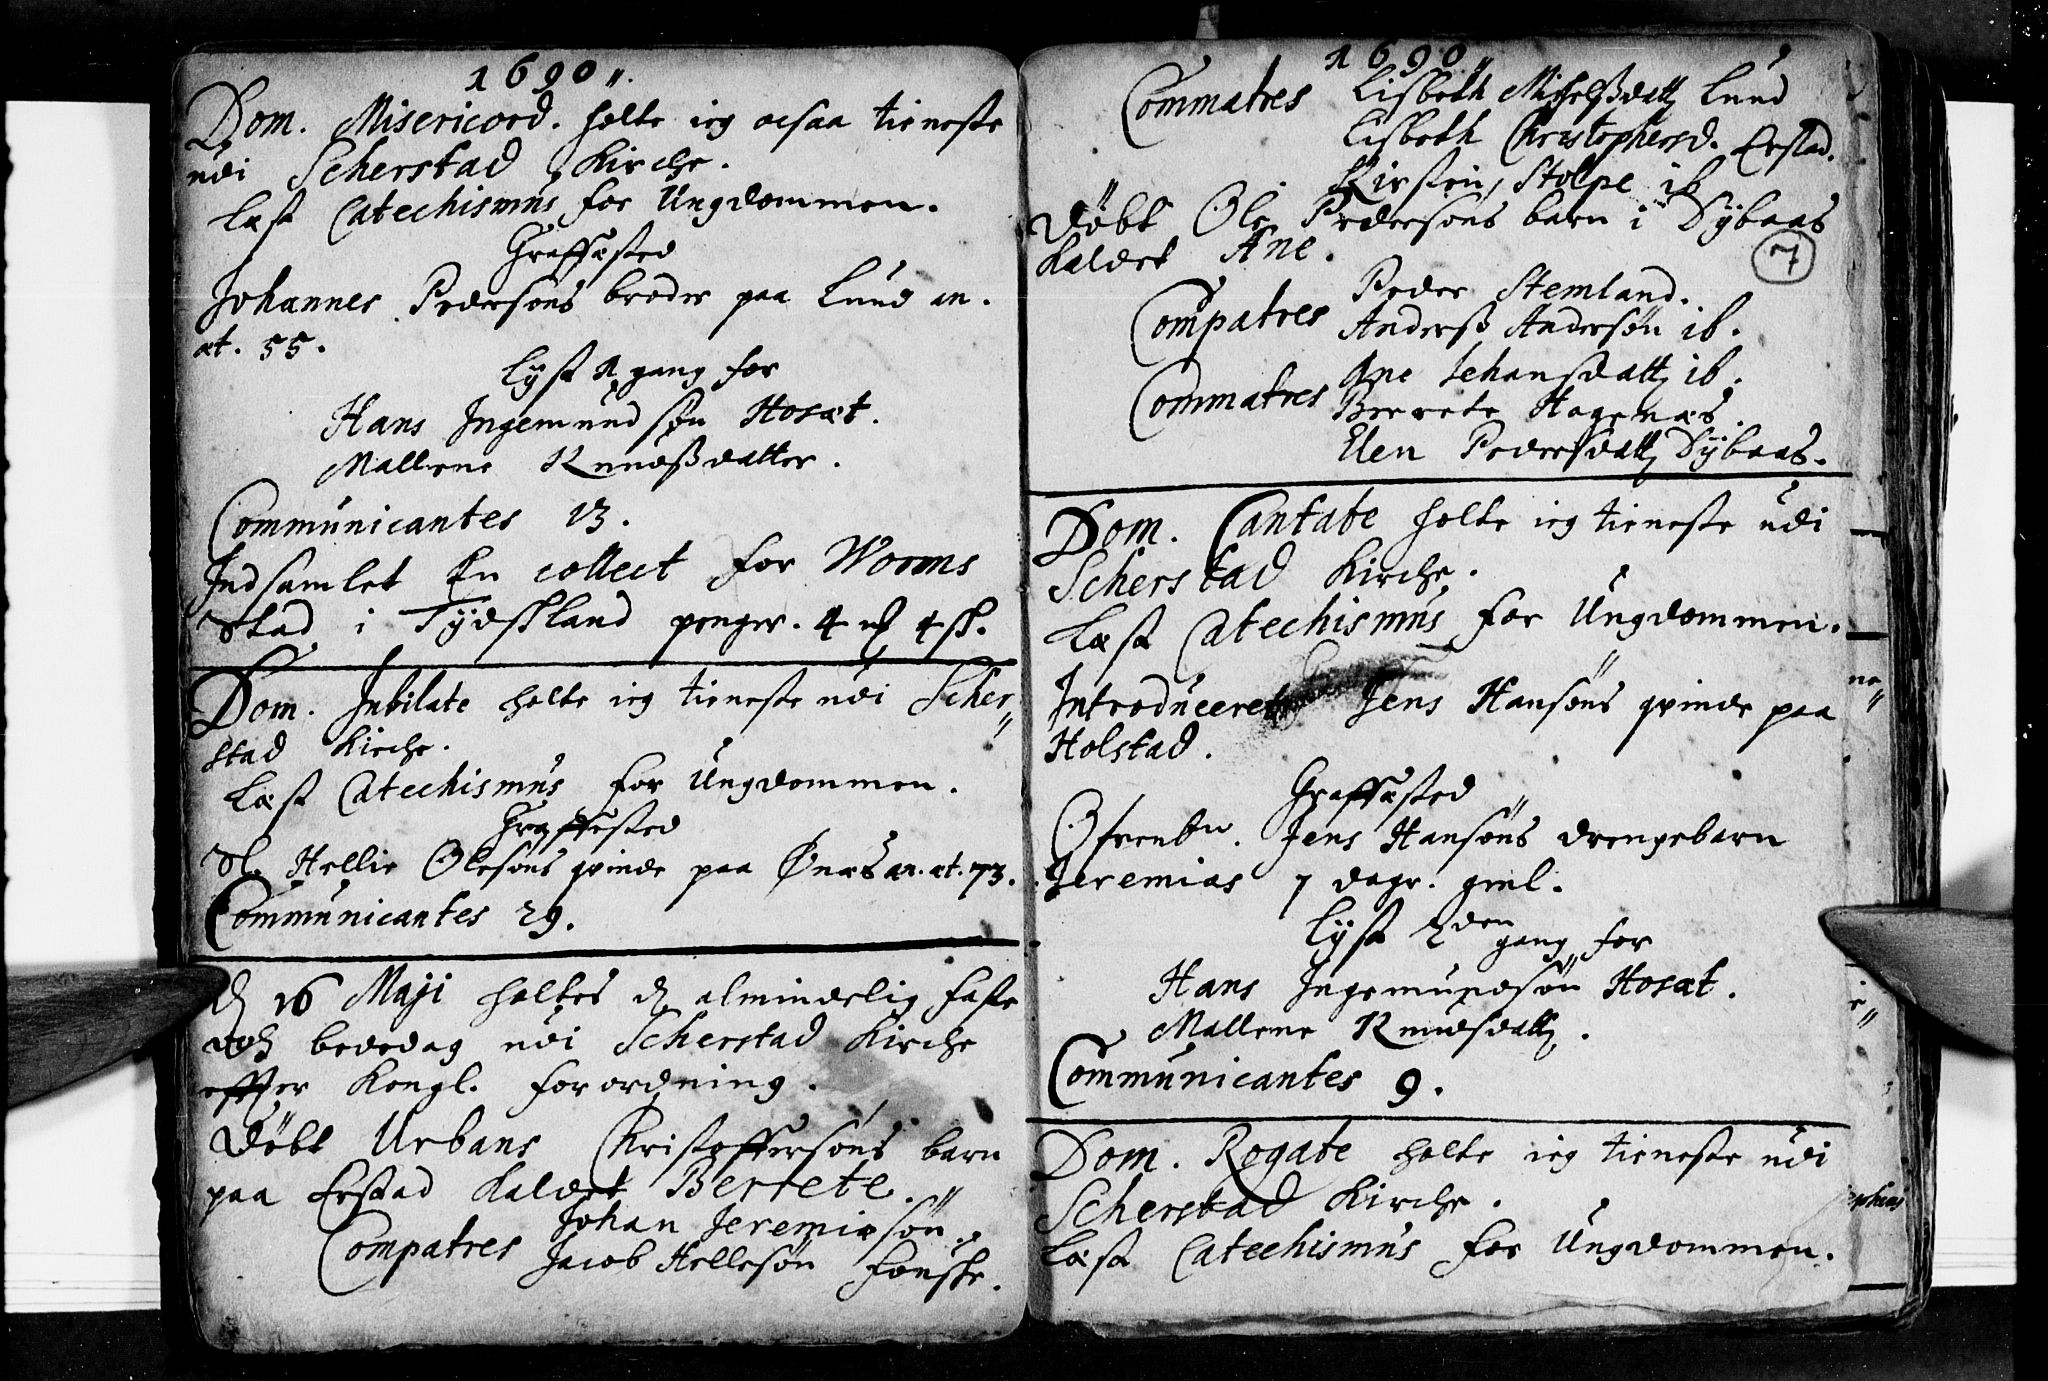 1690
Dom. Misericord. holte ieg ocsaa tieneste
udi Scherstad Kirche.
Læst Catechismus for Ungdommen.
Graffæsted
Johannes Pedersøns broder paa Lund an.
æt. 55.
Lyst 1 gang for
Hans Ingemundsøn Hosæt.
Mallene Knudsdatter.
Communicantes 13.
Indsamlet En collect for Worms
Stad i Tydskland penger. 4 4 sk.
Dom. Jubilate holte ieg tieneste udi Scher„
stad Kirche.
Læst Catechismus for Ungdommen.
Graffæsted
Sl. Hellie Olesøns qvinde paa Ønæs an. æt. 73.
Communicantes 29.
16 Maji holtes almindelig faste
och bededag udi Scherstad Kirche
effter Kongl. forordning.
Døbt Urbans Christoffersøns barn
paa Erstad kaldet Berrete.
Johan Jeremiæsøn
Compatres Jacob Hellesøn Fouske.
1690
Commatres Lisbeth Michelsdatt Lund
Lisbeth Christophersd. Erstad.
Kirsten Stolpe ib
Døbt Ole Pedersøns barn i Dybaas
kaldet Ane.
7
Peder Stemland.
Compatres Anderss Andersøn ib.
Ane Johansdatt ib.
Commatres Berrete Hagenæs.
Elen Pedersdatt Dybaas.
Dom. Cantate holte ieg tieneste udi
Scherstad Kirche.
Læst Catechismus for Ungdommen.
Introduceret Jens Hansøns qvinde paa
Holstad.
Graffæsted
Jens Hansøns drengebarn
Jeremias 7 dage. gml.
Lyst 2den gang for
Hans Ingemundsøn Hosæt.
Mallene Knudsdatt.
Communicantes 9.
Dom. Rogate holte ieg tieneste udi
Scherstad Kirche.
Læst Catechismus for Ungdommen.